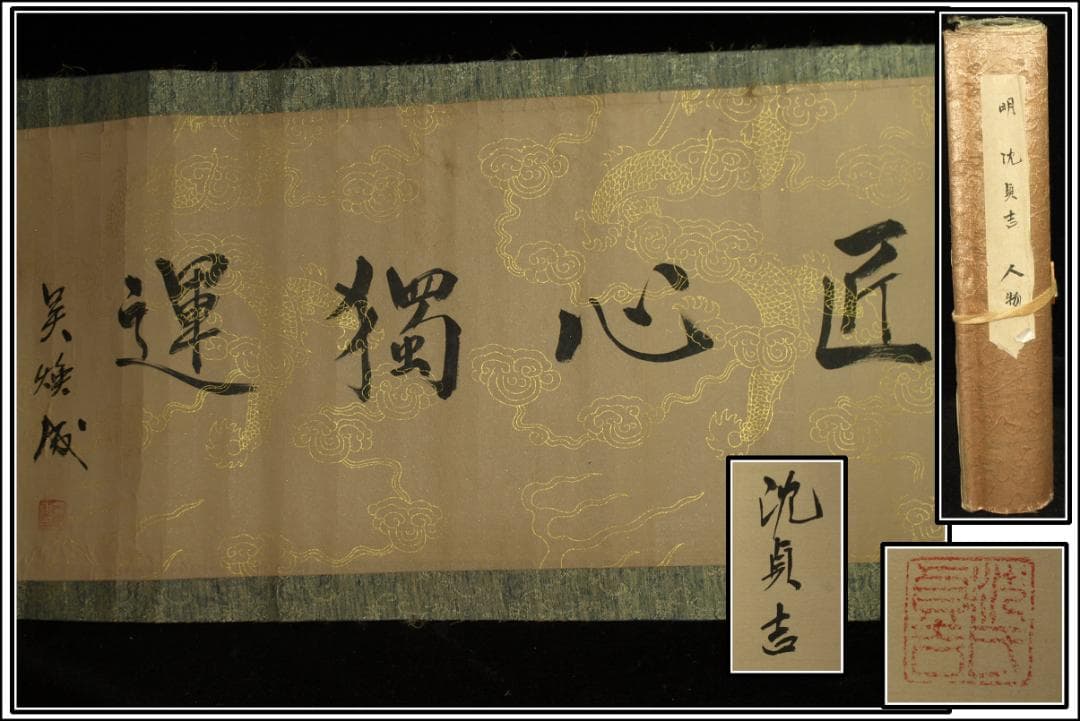 匠心獨運
吴焕
明 沈貞吉 人物
沈貞吉
沈氏貞吉